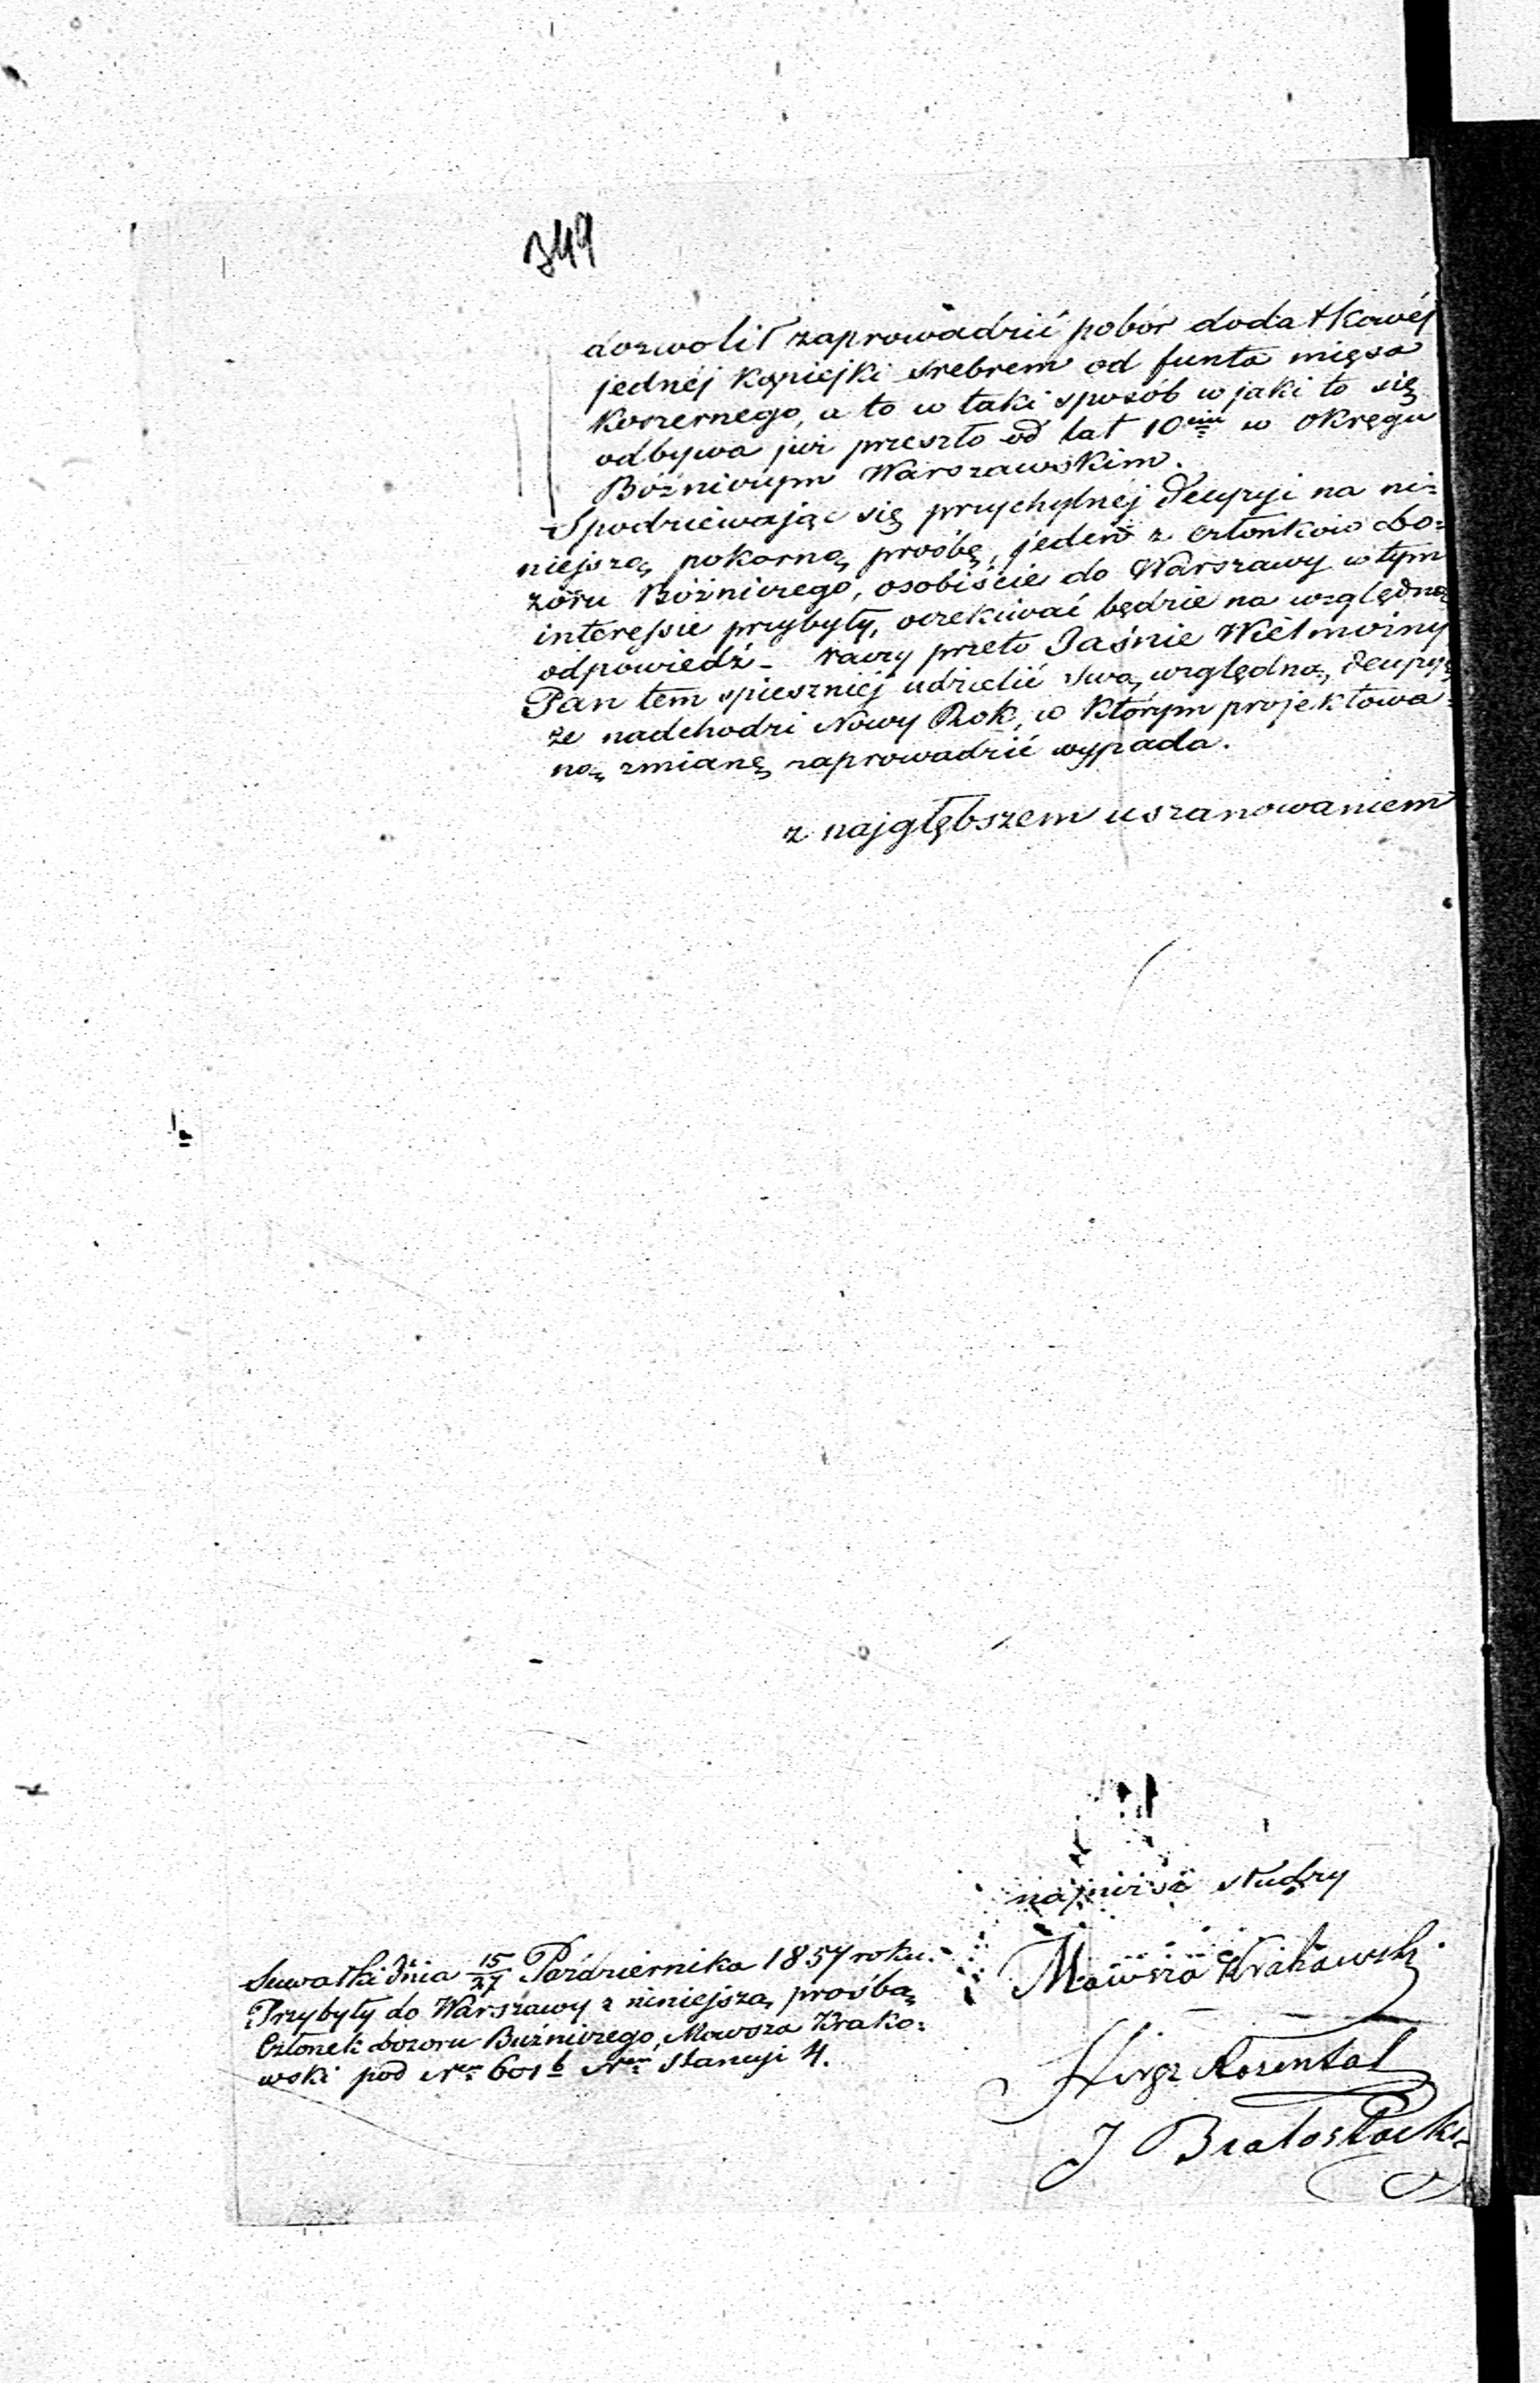 349
dozwolił zaprowadzić pobór dodatkowéj
jednéj kopiejki srebrem od funta mięsa
koszernego, a to w taki sposób w jaki to się
odbywa już przeszło od lat 10ciu w okręgu
Bóżniczym Warszawskim.
Spodziewając się przychylnéj decyzyi na ni=
niejszą pokorną prośbę, jeden z członków do=
zoru Bóżniczego, osobiście do Warszawy w tym
interessie przybyły, oczekiwać będzie na względną
odpowiedź - raczy przeto Jaśnie Wielmożny
Pan tem spieszniéj udzielić swą względną decyzyę
że nadchodzi Nowy Rok, w którym projektowa=
ną zmianę zaprowadzić wypada.
z najgłębszem uszanowaniem
najniżsi słudzy
Mowsza Krakowski
Hirsz Rosental
J Białostocki
Suwałki dnia 15/27 Października 1857 roku.
Przybyły do Warszawy z niniejszą prośbą
Członek dozoru Buźniczego, Mowsza Krako=
wski pod Nrem 601 b Nrem Stancyi 4.